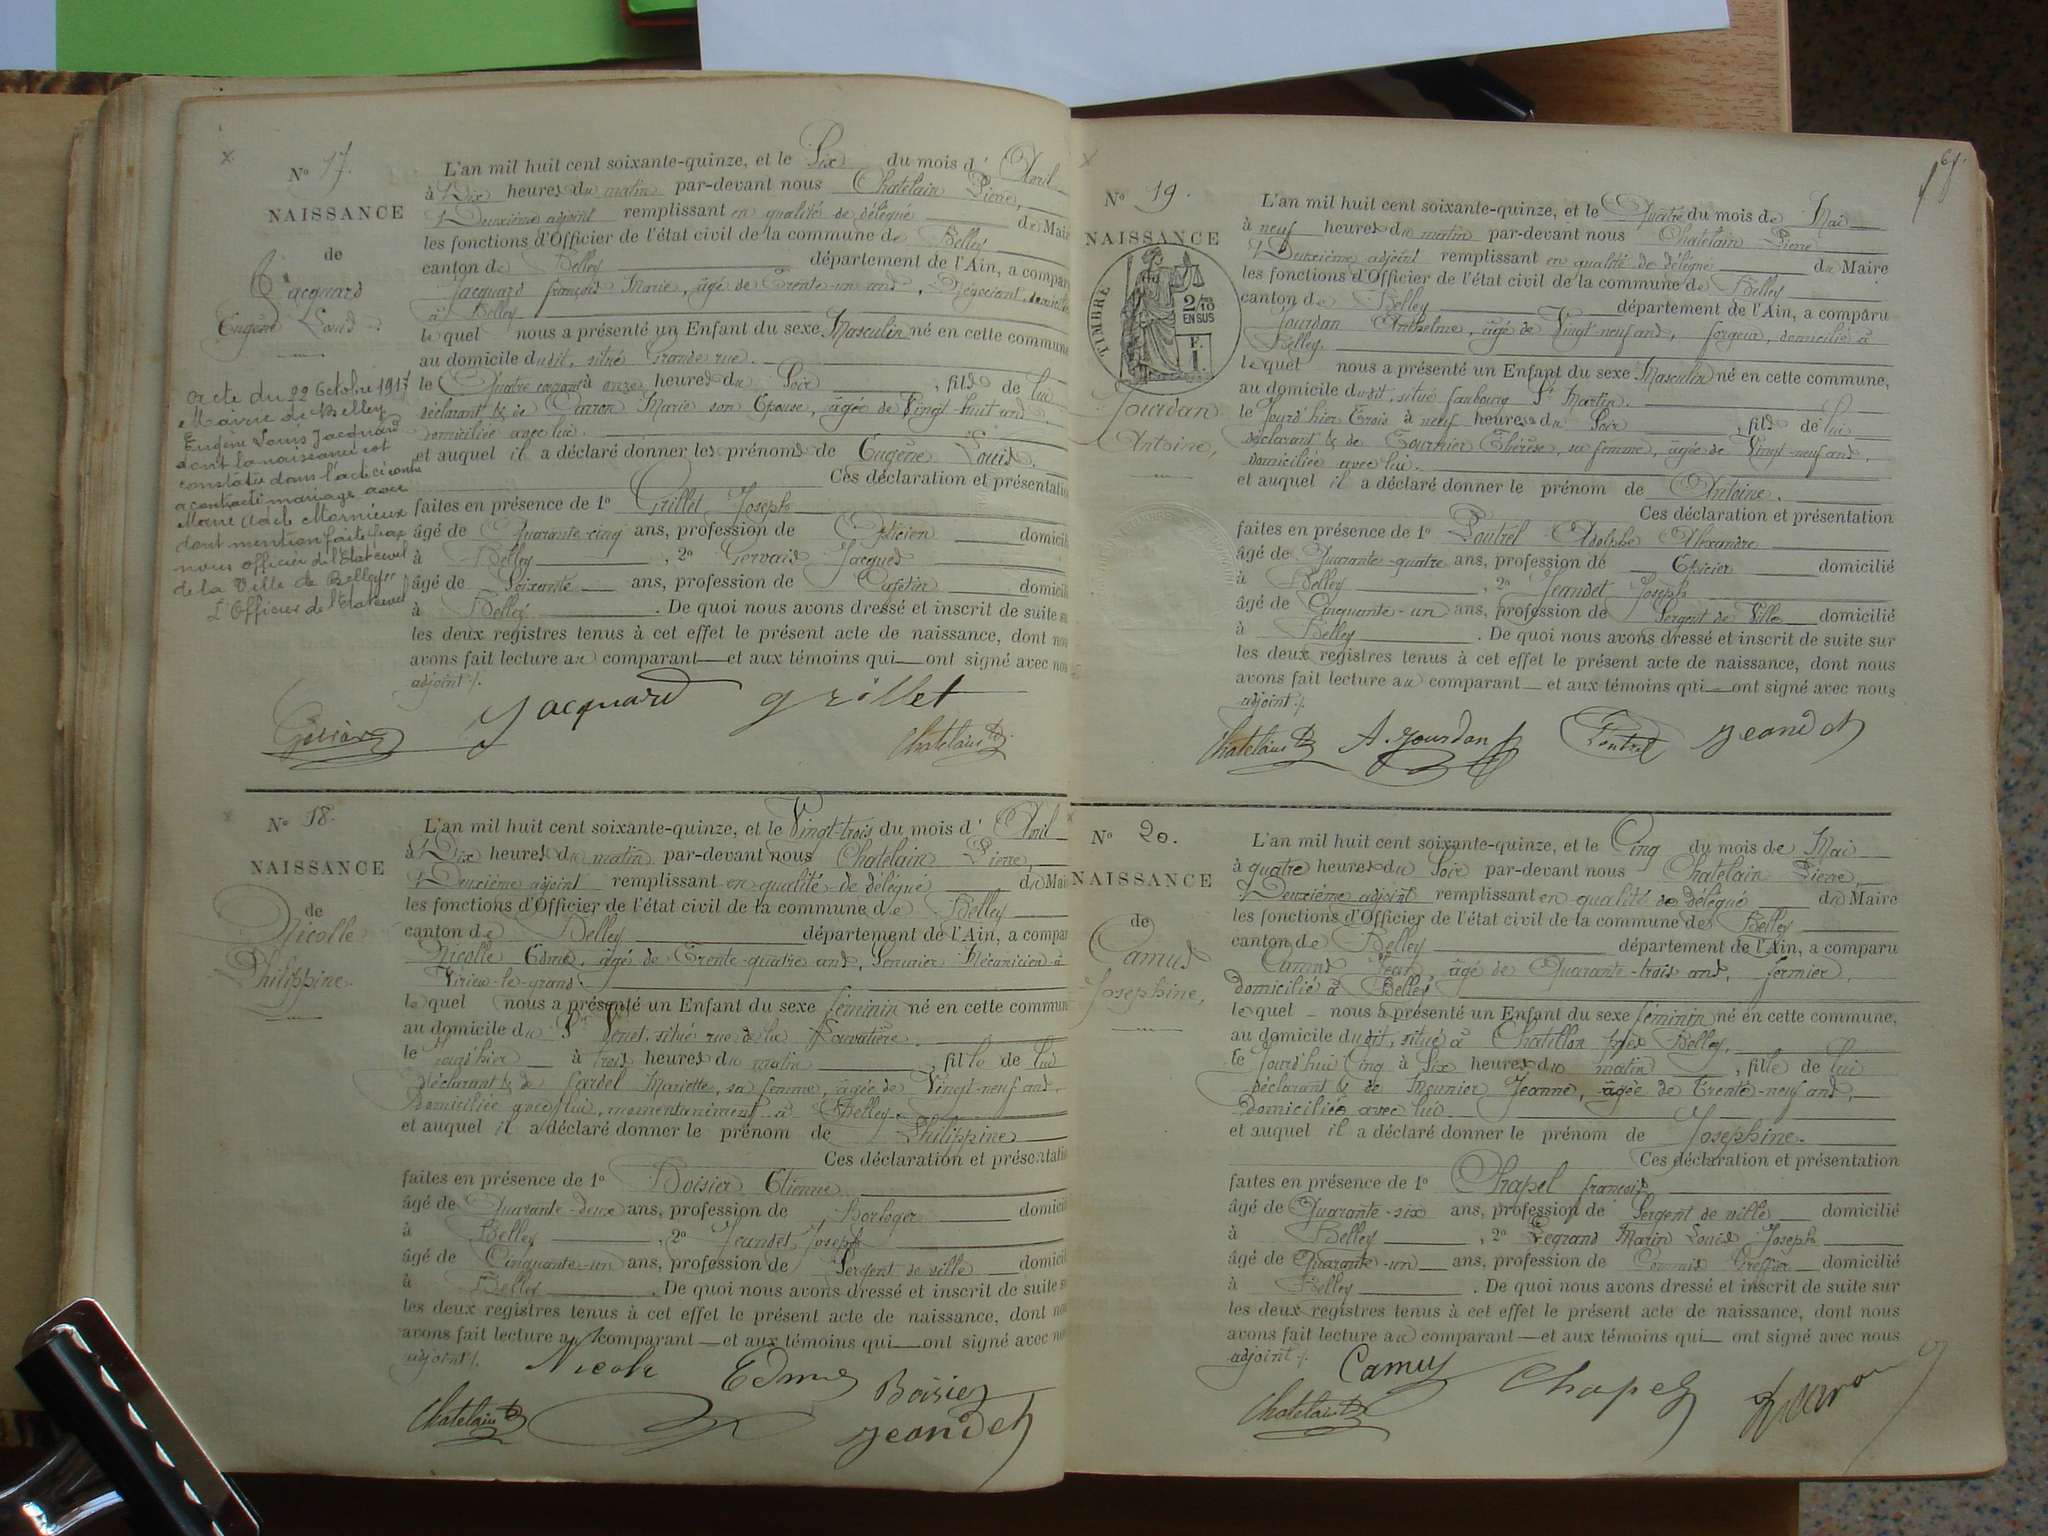 N° 17.
NAISSANCE
de
Jacquard
Eugène Louis
acte du 22 Octobre 1917
Mairie de Belley
Eugène Louis Jacquard
dont la naissance est
constatée dans l'acte ci contre
a contracté mariage avec
Marie Adèle Mornieux
dont mention faite par
nous officier de l'Etat civil
de la Ville de Belley
L'Officier de l'Etat civil
L'an mil huit cent soixante-quinze, et le Six du mois d' Avril
à Dix heures du matin par-devant nous Chatelain Pierre,
Deuxième adjoint remplissant en qualité de délégué du Maire
les fonctions d'Officier de l'état civil de la commune de Belley
canton de Belley département de l'Ain, a comparu
Jacquard françois Marie, âgé de Trente-un ans, Négociant, domicilié
à Belley
lequel nous a présenté un Enfant du sexe Masculin né en cette commune
au domicile dudit, situé Grande rue.
le Quatre courant à onze heures du Soir, fils de lui
déclarant & de Carron Marie son Epouse, âgée de Vingt huit ans
domiciliée avec lui.
et auquel il a déclaré donner les prénoms de Eugène Louis.
Ces déclaration et présentation
faites en présence de 1° Grillet Joseph
âgé de Quarante-cinq ans, profession de Opticien domicilié
à Belley, 2° Gervais Jacques
âgé de Soixante ans, profession de Cafetier domicilié
à Belley. De quoi nous avons dressé et inscrit de suite sur
les deux registres tenus à cet effet le présent acte de naissance, dont nous
avons fait lecture au comparant — et aux témoins qui — ont signé avec nous
adjoint ⁒.
Jacquard grillet
Chatelain
N° 18.
NAISSANCE
de
Nicolle
Philippine.
L'an mil huit cent soixante-quinze, et le Vingt-trois du mois d' Avril
à Dix heures du matin par-devant nous Chatelain Pierre,
Deuxième adjoint remplissant en qualité de délégué du Maire
les fonctions d'Officier de l'état civil de la commune de Belley
canton de Belley département de l'Ain, a comparu
Nicolle Edme, âgé de Trente-quatre ans, Serrurier Mécanicien à
Virieu-le-grand.
lequel nous a présenté un Enfant du sexe féminin né en cette commune
au domicile du Sr situé rue de la
le jourd'hier à trois heures du matin, fille de lui
déclarant & de fardel Mariette, sa femme, âgée de Vingt-neuf ans
domiciliée avec lui, momentanément à Belley.
et auquel il a déclaré donner le prénom de Philippine
Ces déclaration et présentation
faites en présence de 1° Boisier Etienne
âgé de Quarante-deux ans, profession de Horloger domicilié
à Belley, 2° Jeandet Joseph
âgé de Cinquante-un ans, profession de Sergent de ville domicilié
à Belley. De quoi nous avons dressé et inscrit de suite sur
les deux registres tenus à cet effet le présent acte de naissance, dont nous
avons fait lecture au comparant — et aux témoins qui — ont signé avec nous
adjoint ⁒.
Nicole Edme Boisier
Chatelain Jeandet
N° 19.
NAISSANCE
TIMBRE
2/10
EN SUS
F.
1.
Jourdan
Antoine,
L'an mil huit cent soixante-quinze, et le Quatre du mois de Mai
à neuf heures du matin par-devant nous Chatelain Pierre
Deuxième adjoint remplissant en qualité de délégué du Maire
les fonctions d'Officier de l'état civil de la commune de Belley
canton de Belley département de l'Ain, a comparu
Jourdan Anthelme, âgé de Vingt neuf ans, forgeur, domicilié à
Belley.
lequel nous a présenté un Enfant du sexe Masculin né en cette commune,
au domicile dudit, situé faubourg St Martin.
le Jourd'hier Trois à neuf heures du Soir, fils de lui
déclarant & de Tournier Thérèse, sa femme, âgée de Vingt-neuf ans,
domiciliée avec lui.
et auquel il a déclaré donner le prénom de Antoine.
Ces déclaration et présentation
faites en présence de 1° Poutrel Adolphe Alexandre
âgé de Quarante-quatre ans, profession de domicilié
à Belley, 2° Jeandet Joseph
âgé de Cinquante-un ans, profession de Sergent de Ville domicilié
à Belley. De quoi nous avons dressé et inscrit de suite sur
les deux registres tenus à cet effet le présent acte de naissance, dont nous
avons fait lecture au comparant — et aux témoins qui — ont signé avec nous
adjoint ⁒.
Chatelain A. Jourdan Poutrel Jeandet
N° 20.
NAISSANCE
de
Camus
Josephine,
L'an mil huit cent soixante-quinze, et le Cinq du mois de Mai
à quatre heures du Soir par-devant nous Chatelain Pierre,
Deuxième adjoint remplissant en qualité de délégué du Maire
les fonctions d'Officier de l'état civil de la commune de Belley
canton de Belley département de l'Ain, a comparu
Camus Jean, âgé de Quarante-trois ans, fermier,
domicilié à Belley
lequel nous a présenté un Enfant du sexe féminin né en cette commune,
au domicile dudit, situé à Chatillon près Belley,
le Jourd'hui Cinq à Six heures du matin, fille de lui
déclarant & de Meunier Jeanne, âgée de Trente-neuf ans,
domiciliée avec lui.
et auquel il a déclaré donner le prénom de Josephine.
Ces déclaration et présentation
faites en présence de 1° Chapel françois
âgé de Quarante-six ans, profession de Sergent de ville domicilié
à Belley, 2° Legrand Marin Louis Joseph
âgé de Quarante-un ans, profession de Commis Greffier domicilié
à Belley. De quoi nous avons dressé et inscrit de suite sur
les deux registres tenus à cet effet le présent acte de naissance, dont nous
avons fait lecture au comparant — et aux témoins qui — ont signé avec nous
adjoint ⁒.
Camus Chapel
Chatelain